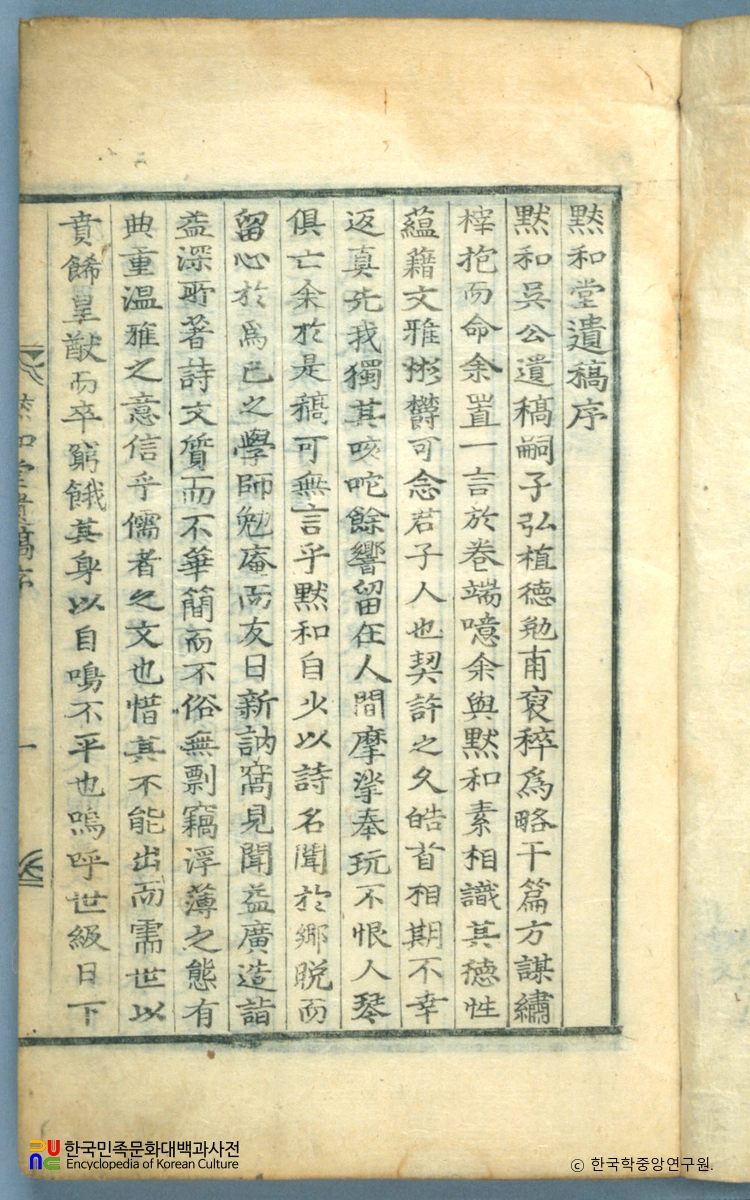 黙和堂遺稿序
黙和吳公遺稿嗣子弘植德勉甫裒稡爲略干篇方謀繡
梓抱而命余置一言於卷端噫余與黙和素相識其德性
蘊藉文雅彬欝可念君子人也契許之久皓首相期不幸
返真先我獨其咳唾餘響留在人間摩挲奉玩不恨人琴
俱亡余於是稿可無言乎黙和自少以詩名聞於鄉晩而
留心於爲己之學師勉庵而友日新訥窩見聞益廣造詣
益深所著詩文質而不華簡而不俗無剽竊浮薄之態有
典重溫雅之意信乎儒者之文也惜其不能出而需世以
賁餙皇猷而卒窮餓其身以自鳴不平也嗚呼世級日下
黙和堂遺稿序
一
한국민족문화대백과사전
Encyclopedia of Korean Culture
ⓒ 한국학중앙연구원.